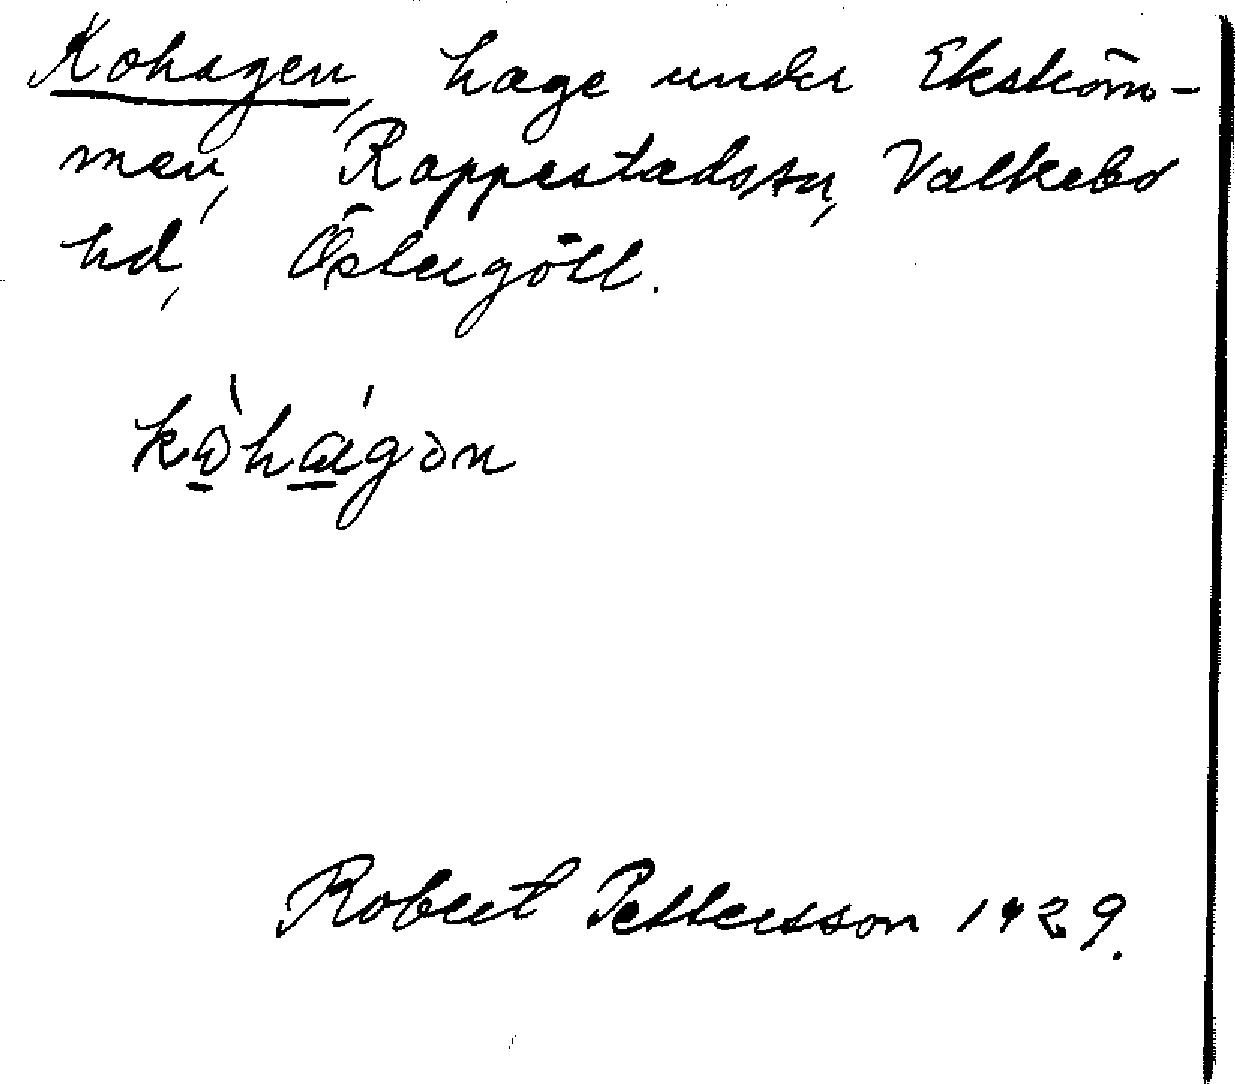 Kohagen, hage under Ekström-
men, Rappestad sn, Valkebo
hd, Östergötl.
Robert Pettersson 1929.